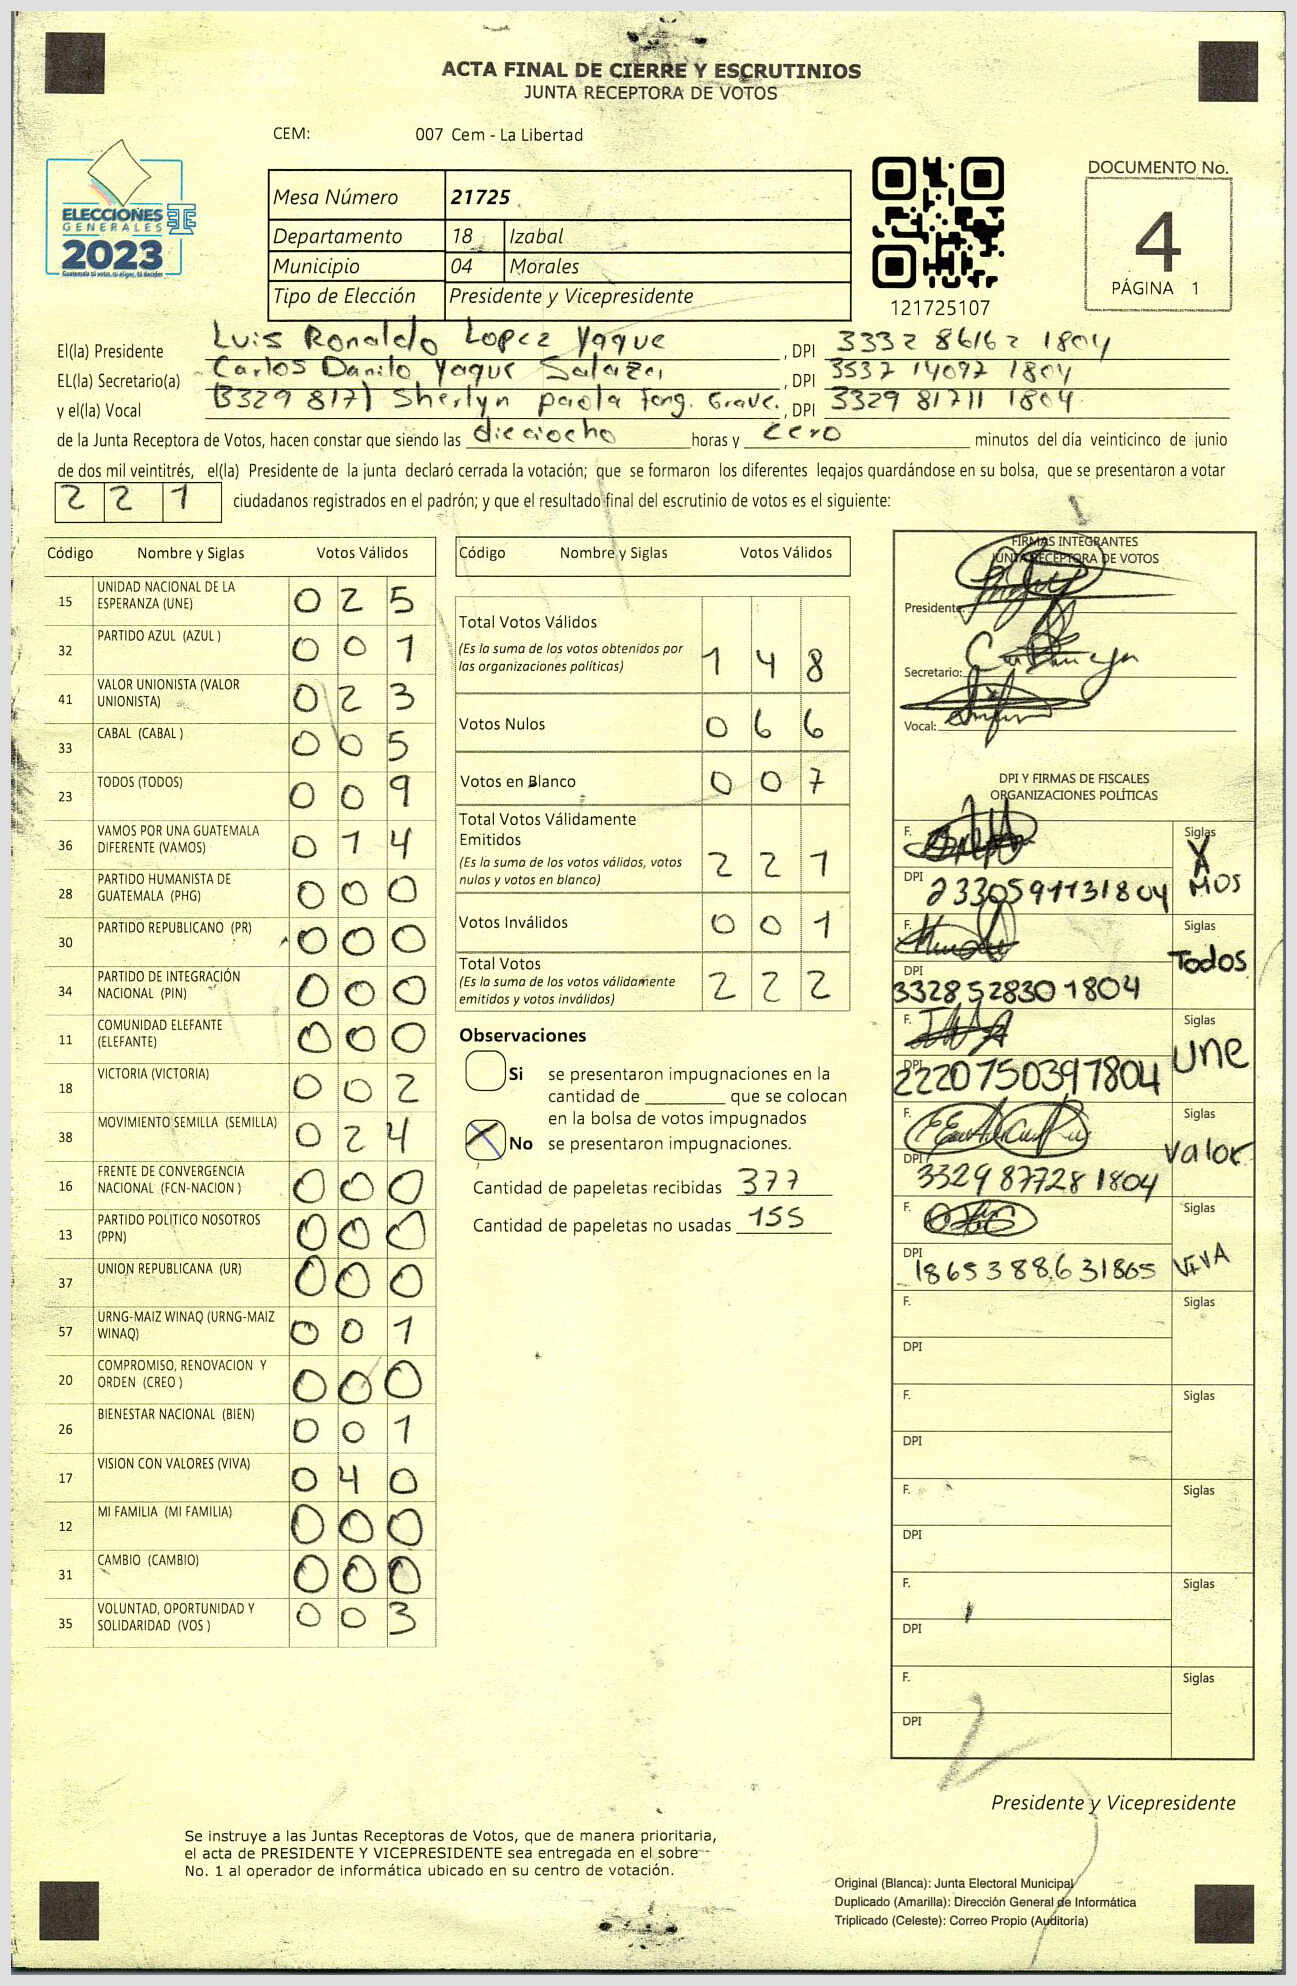 ACTA FINAL DE CIERRE Y ESCRUTINIOS
JUNTA RECEPTORA DE VOTOS
CEM: 007 Cem - La Libertad
ELECCIONES
GENERALES
2023
Mesa Número 21725
Departamento 18 Izabal
Municipio 04 Morales
Tipo de Elección Presidente y Vicepresidente
121725107
DOCUMENTO No.
4
PÁGINA 1
El(la) Presidente Luis Ronaldo Lopez Yaque, DPI 3332 86162 1804
EL(la) Secretario(a) Carlos Danilo Yaque Salazar, DPI 3537 14092 1804
y el(la) Vocal Sherlyn paola, DPI 3329 81711 1804
de la Junta Receptora de Votos, hacen constar que siendo las dieciocho horas y cero minutos del día veinticinco de junio
de dos mil veintitrés, el(la) Presidente de la junta declaró cerrada la votación; que se formaron los diferentes legajos guardándose en su bolsa, que se presentaron a votar
221 ciudadanos registrados en el padrón; y que el resultado final del escrutinio de votos es el siguiente:
Código Nombre y Siglas Votos Válidos
15 UNIDAD NACIONAL DE LA ESPERANZA (UNE) 0 2 5
32 PARTIDO AZUL (AZUL ) 0 0 1
41 VALOR UNIONISTA (VALOR UNIONISTA) 0 2 3
33 CABAL (CABAL ) 0 0 5
23 TODOS (TODOS) 0 0 9
36 VAMOS POR UNA GUATEMALA DIFERENTE (VAMOS) 0 1 4
28 PARTIDO HUMANISTA DE GUATEMALA (PHG) 0 0 0
30 PARTIDO REPUBLICANO (PR) 0 0 0
34 PARTIDO DE INTEGRACIÓN NACIONAL (PIN) 0 0 0
11 COMUNIDAD ELEFANTE (ELEFANTE) 0 0 0
18 VICTORIA (VICTORIA) 0 0 2
38 MOVIMIENTO SEMILLA (SEMILLA) 0 2 4
16 FRENTE DE CONVERGENCIA NACIONAL (FCN-NACION ) 0 0 0
13 PARTIDO POLITICO NOSOTROS (PPN) 0 0 0
37 UNION REPUBLICANA (UR) 0 0 0
57 URNG-MAIZ WINAQ (URNG-MAIZ WINAQ) 0 0 1
20 COMPROMISO, RENOVACION Y ORDEN (CREO ) 0 0 0
26 BIENESTAR NACIONAL (BIEN) 0 0 1
17 VISION CON VALORES (VIVA) 0 4 0
12 MI FAMILIA (MI FAMILIA) 0 0 0
31 CAMBIO (CAMBIO) 0 0 0
35 VOLUNTAD, OPORTUNIDAD Y SOLIDARIDAD (VOS ) 0 0 3
Código Nombre y Siglas Votos Válidos
Total Votos Válidos 1 4 8
(Es la suma de los votos obtenidos por
las organizaciones políticas)
Votos Nulos 0 6 6
Votos en Blanco 0 0 7
Total Votos Válidamente
Emitidos 2 2 1
(Es la suma de los votos válidos, votos
nulos y votos en blanco)
Votos Inválidos 0 0 1
Total Votos 2 2 2
(Es la suma de los votos válidamente
emitidos y votos inválidos)
Observaciones
Si se presentaron impugnaciones en la
cantidad de ________ que se colocan
en la bolsa de votos impugnados
X No se presentaron impugnaciones.
Cantidad de papeletas recibidas 377
Cantidad de papeletas no usadas 155
FIRMAS INTEGRANTES
JUNTA RECEPTORA DE VOTOS
Presidente:
Secretario:
Vocal:
DPI Y FIRMAS DE FISCALES
ORGANIZACIONES POLÍTICAS
F. Siglas
MOS
DPI 2330591131804
F. Siglas
Todos
DPI 3328528301804
F. Siglas
une
DPI 2220750397804
F. Siglas
valor
DPI 3329 87728 1804
F. Siglas
VIVA
DPI 1865388631805
F. Siglas
DPI
F. Siglas
DPI
F. Siglas
DPI
F. Siglas
DPI
F. Siglas
DPI
Presidente y Vicepresidente
Se instruye a las Juntas Receptoras de Votos, que de manera prioritaria,
el acta de PRESIDENTE Y VICEPRESIDENTE sea entregada en el sobre
No. 1 al operador de informática ubicado en su centro de votación.
Original (Blanca): Junta Electoral Municipal
Duplicado (Amarilla): Dirección General de Informática
Triplicado (Celeste): Correo Propio (Auditoría)